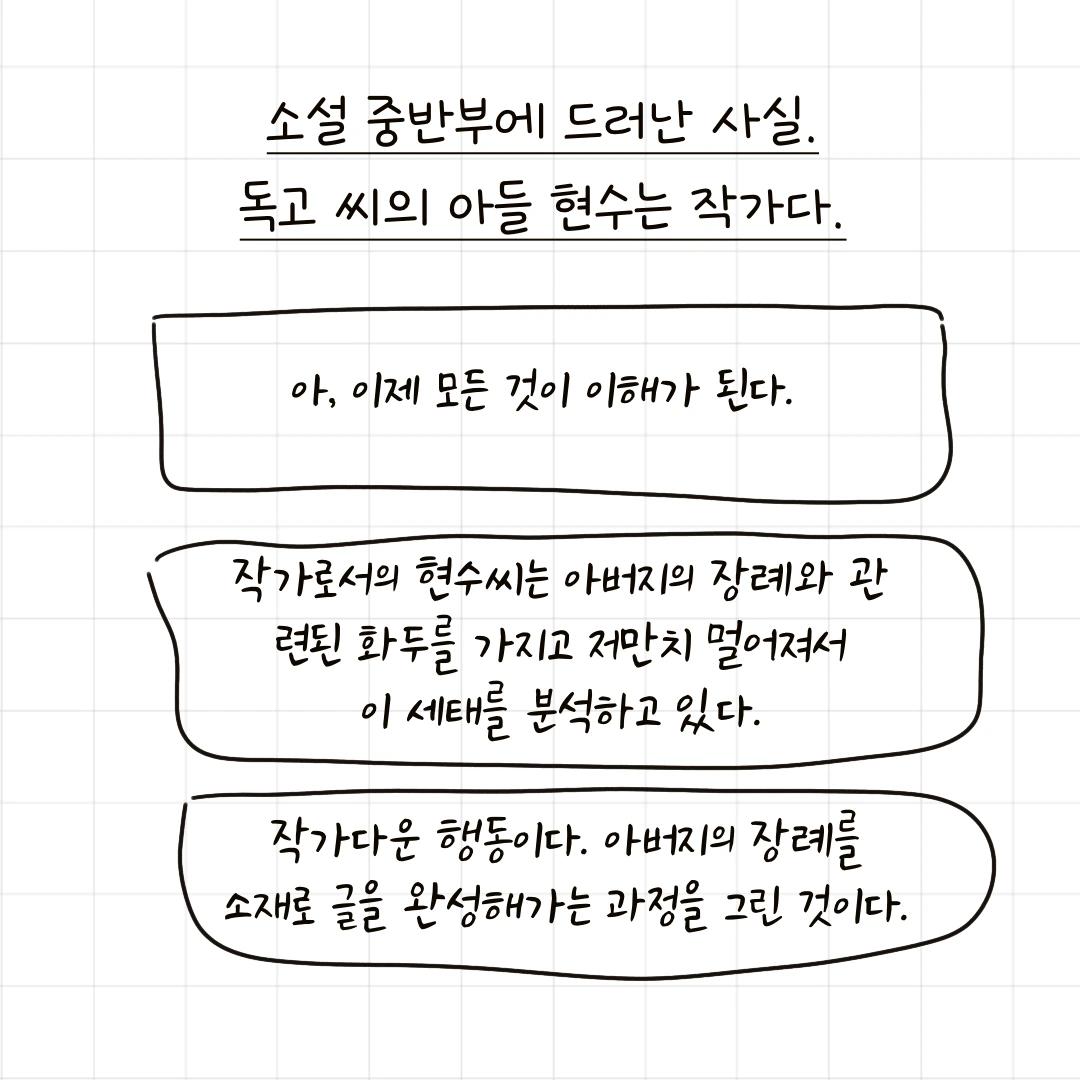 소설 중반부에 드러난 사실.
독고 씨의 아들 현수는 작가다.
아, 이제 모든 것이 이해가 된다.
작가로서의 현수씨는 아버지의 장례와 관
련된 화두를 가지고 저만치 멀어져서
이 세태를 분석하고 있다.
작가다운 행동이다. 아버지의 장례를
소재로 글을 완성해가는 과정을 그린 것이다.